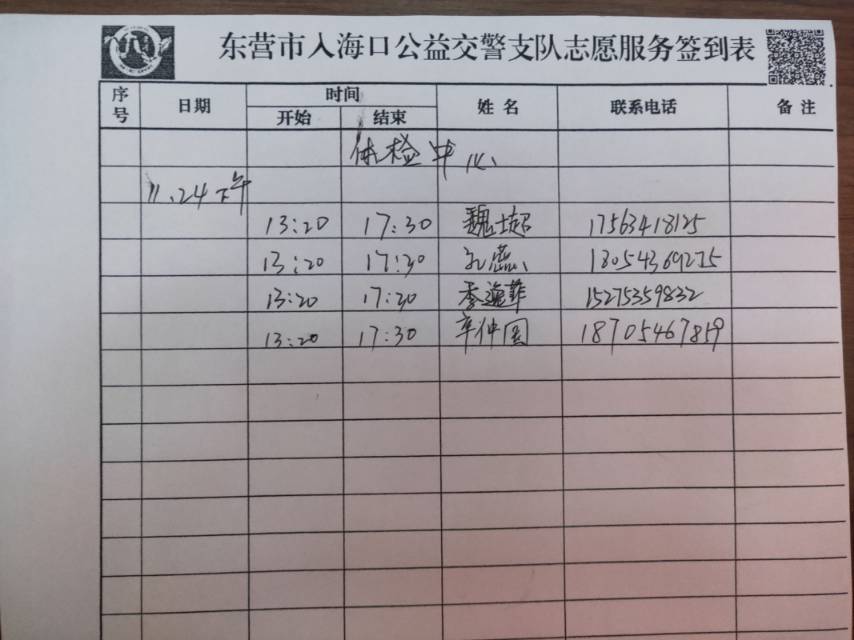 东营市入海口公益交警支队志愿服务签到表
序号 日期 时间 姓名 联系电话 备注
开始 结束
体检中心
11.24下午
13:20 17:30 魏士超 17563418125
13:20 17:30 孔 13054369275
13:20 17:30 李逸菲 15275359832
13:20 17:30 辛仲国 18705467859